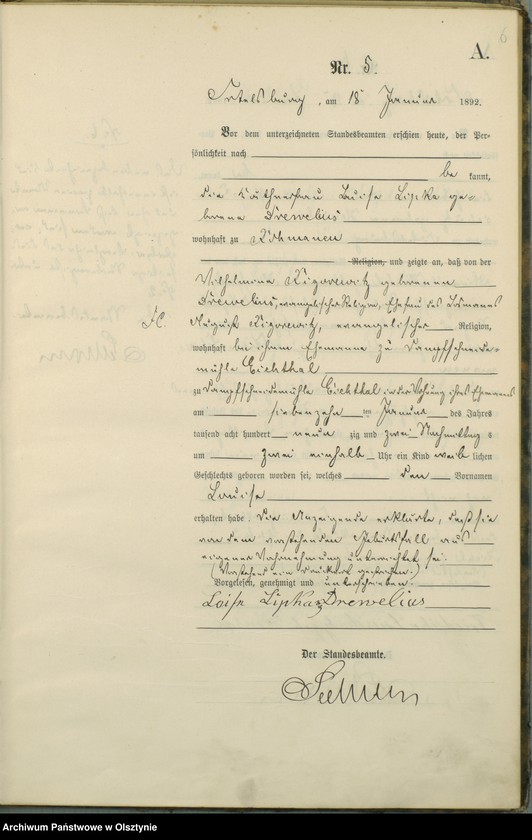 6
A.
Nr. 5.
Ortelsburg, am 18 Januar 1892.
Vor dem unterzeichneten Standesbeamten erschien heute, der Per-
sönlichkeit nach
be kannt,
die Käthnerfrau Luise Lipka ge-
borene Drewelius
wohnhaft zu
Religion, und zeigte an, daß von der
Wilhelmine geborenen
Drewelius, evangelischer Religion, Ehefrau des
August evangelischer Religion,
wohnhaft bei ihrem Ehemanne zu Dampfschneide-
mühle Eichthal
zu Dampfschneidemühle Eichthal in der Wohnung ihres Ehemannes
am siebenzehn ten Januar des Jahres
tausend acht hundert neun zig und zwei Nachmittag s
um zwei einhalb Uhr ein Kind weib lichen
Geschlechts geboren worden sei, welches den Vornamen
Louise
erhalten habe. Die Anzeigende erklärte, daß sie
von dem vorstehenden Geburtsfall aus
eigener Wahrnehmung unterrichtet sei.
(Vorstehend ein Druckwort gestrichen.)
Vorgelesen, genehmigt und unterschrieben.
Loise Lipka Drewelius
Der Standesbeamte.
Archiwum Państwowe w Olsztynie